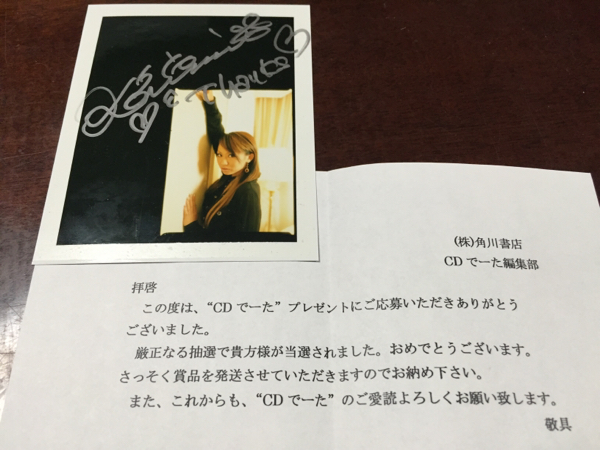 Thanks
(株)角川書店
CDでーた編集部
拝啓
この度は、“CDでーた”プレゼントにご応募いただきありがとう
ございました。
厳正なる抽選で貴方様が当選されました。おめでとうございます。
さっそく賞品を発送させていただきますのでお納め下さい。
また、これからも、“CDでーた”のご愛読よろしくお願い致します。
敬具